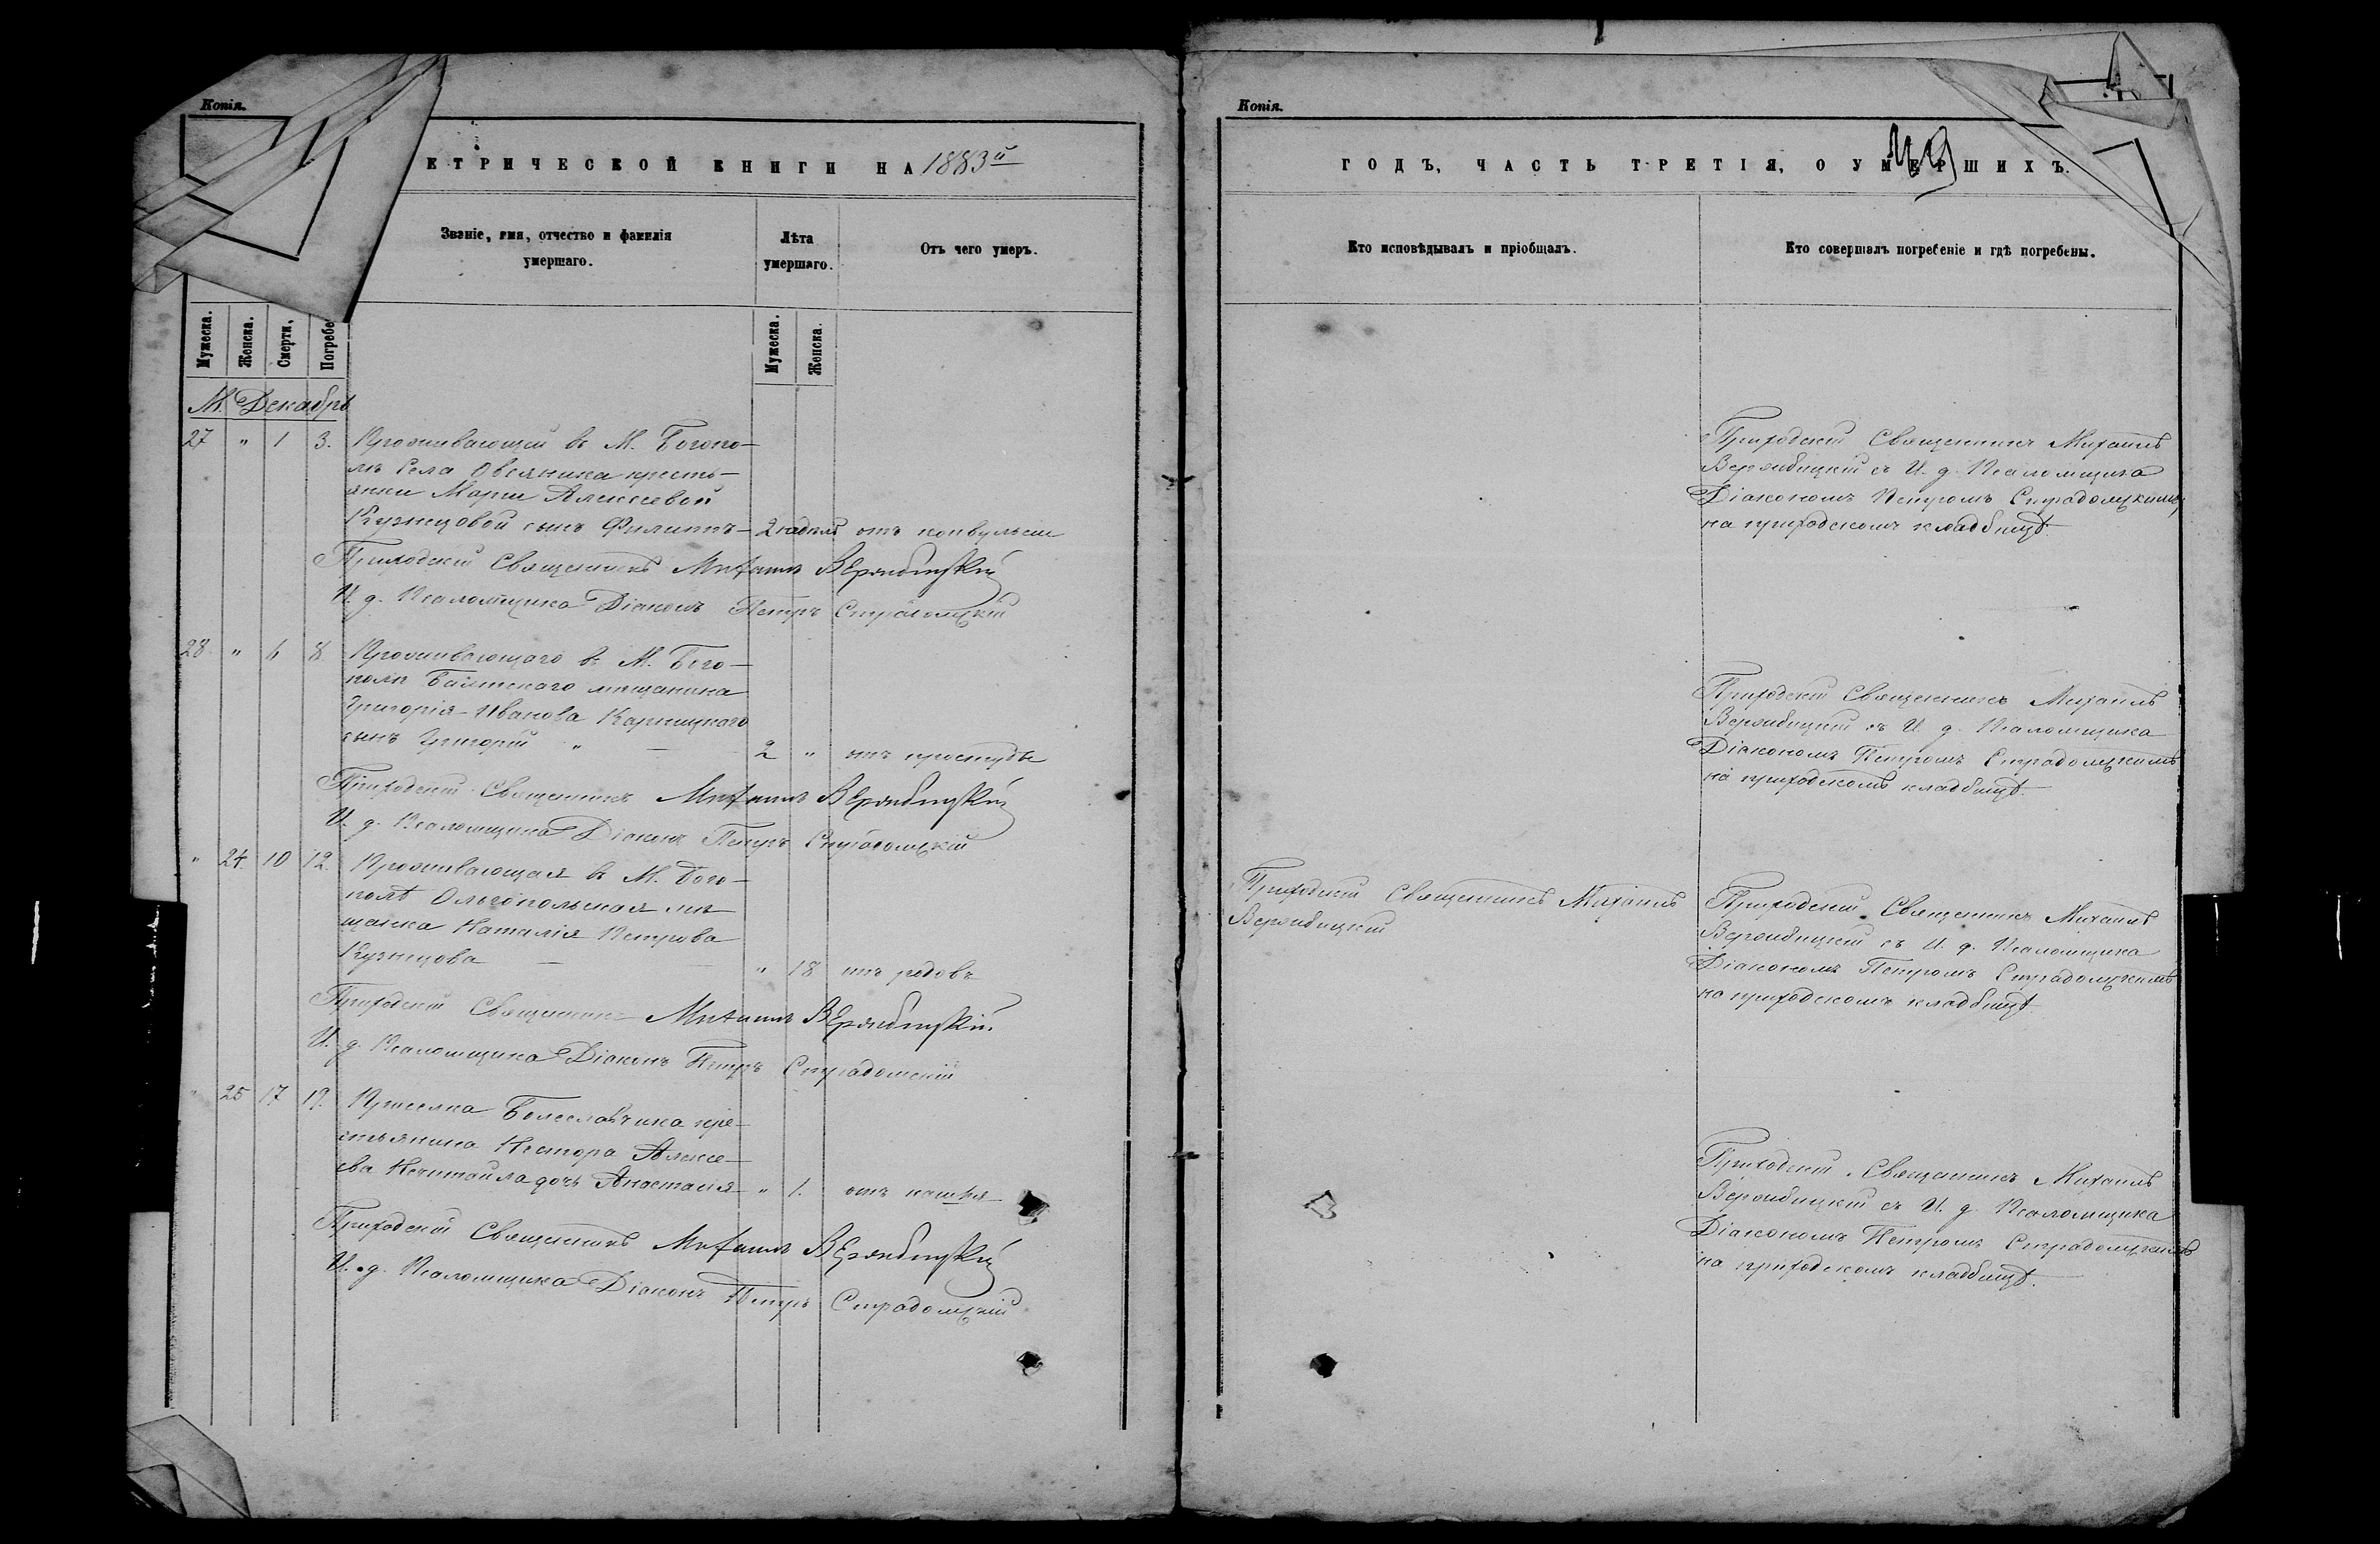 Копія.
ЕТРИЧЕСКОЙ КНИГИ НА 1883й
Званіе, имя, отчество и фамилія
умершаго.
Лѣта
умершаго.
Отъ чего умеръ.
Мужеска.
Женска.
Смерти,
Погребе
Мужеска.
Женска.
М. Декабрь
27 " 1 3. Проживающей въ М. Богопо-
лѣ Села Овсяника кресть-
янки Маріи Алексеевой
Кузнецовой сынъ Филиппъ - 2 недѣли отъ конвульсіи
Приходскій Священникъ Михаилъ Вержбицкій
И. д. Псаломщика Діаконъ Петръ Страдомскій
28 " 6 8 Проживающаго въ М. Бого-
полѣ Балтскаго мѣщанина
Григорія Иванова Карницкаго
сынъ Григорій " 2 " отъ простуды
Приходскій Священникъ Михаилъ Вержбицкій
И. д. Псаломщика Діаконъ Петръ Страдомскій
" 24 10 12. Проживающая въ М. Бого-
полѣ Ольгопольская мѣ-
щанка Наталія Петрова
Кузнецова " 18 отъ родовъ
Приходскій Священникъ Михаилъ Вержбицкій
И. д. Псаломщика Діаконъ Петръ Страдомскій
" 25 17 19. Приселка Болеславчика кре-
стьянина Нестора Алексе-
ева дочь Анастасія " 1. отъ кашля
Приходскій Священникъ Михаилъ Вержбицкій
И. д. Псаломщика Діаконъ Петръ Страдомскій
Копія.
ГОДЪ, ЧАСТЬ ТРЕТІЯ, О УМЕРШИХЪ.
Кто исповѣдывалъ и пріобщалъ.
Кто совершалъ погребеніе и гдѣ погребены.
Приходскій Священникъ Михаилъ
Вержбицкій съ И. д. Псаломщика
Діакономъ Петромъ Страдомскимъ
на приходскомъ кладбищѣ.
Приходскій Священникъ Михаилъ
Вержбицкій съ И. д. Псаломщика
Діакономъ Петромъ Страдомскимъ
на приходскомъ кладбищѣ.
Приходскій Священникъ Михаилъ
Вержбицкій
Приходскій Священникъ Михаилъ
Вержбицкій съ И. д. Псаломщика
Діакономъ Петромъ Страдомскимъ
на приходскомъ кладбищѣ.
Приходскій Священникъ Михаилъ
Вержбицкій съ И. д. Псаломщика
Діакономъ Петромъ Страдомскимъ
на приходскомъ кладбищѣ.